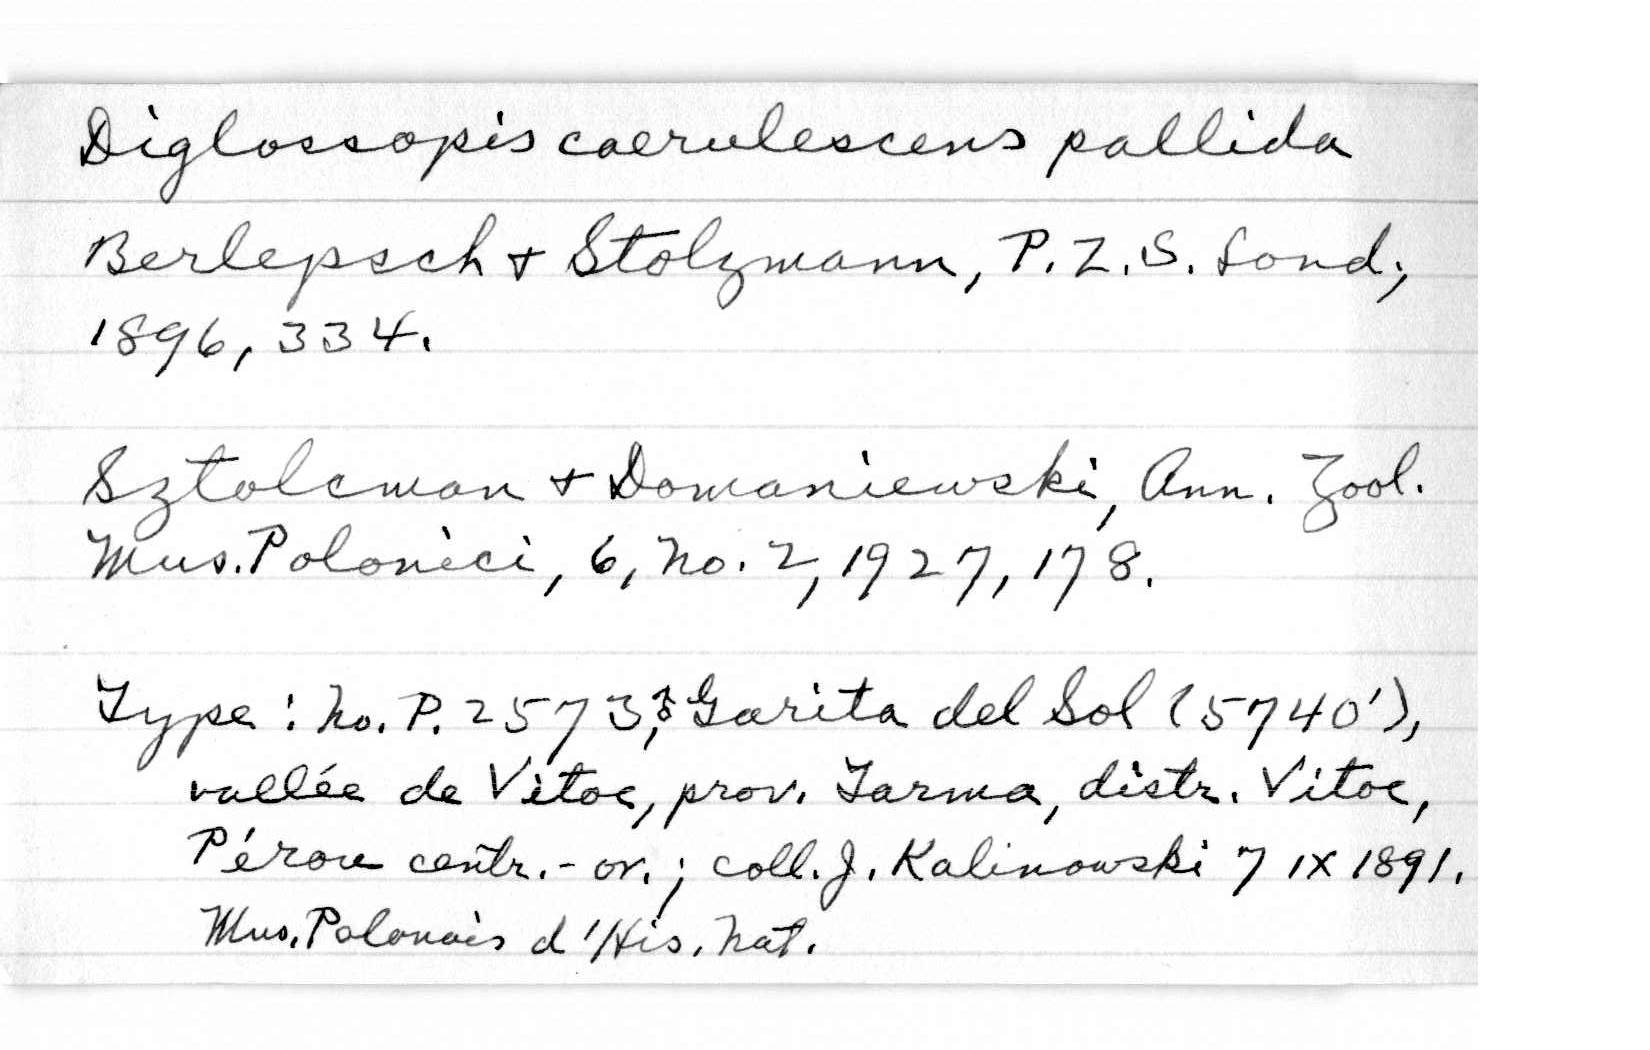 Diglossopis caerulescens pallida
Berlepsch + Stolzmann, P.Z.S. Lond.,
1896, 334.
Sztolcman + Domaniewski, Ann. Zool.
Mus. Polonici, 6, no. 2, 1927, 178.
Type: no. P. 2573, Garita del Sol (5740'),
vallée de Vitoc, prov. Tarma, distr. Vitoc,
Pérou centr.-or.; coll. J. Kalinowski 7 IX 1891.
Mus. Polonais d'His. Nat.